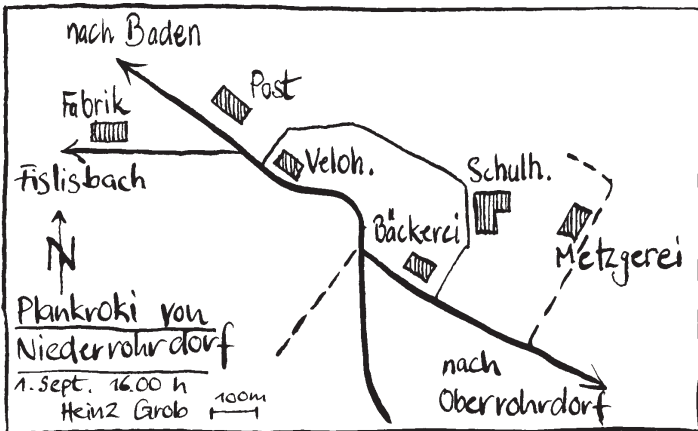 nach Baden
Post
Fabrik
Veloh.
Schulh.
Fislisbach
Bäckerei
Metzgerei
N
Plankroki von
Niederrohrdorf
1. Sept. 16.00 h
Heinz Grob 100m
nach
Oberrohrdorf